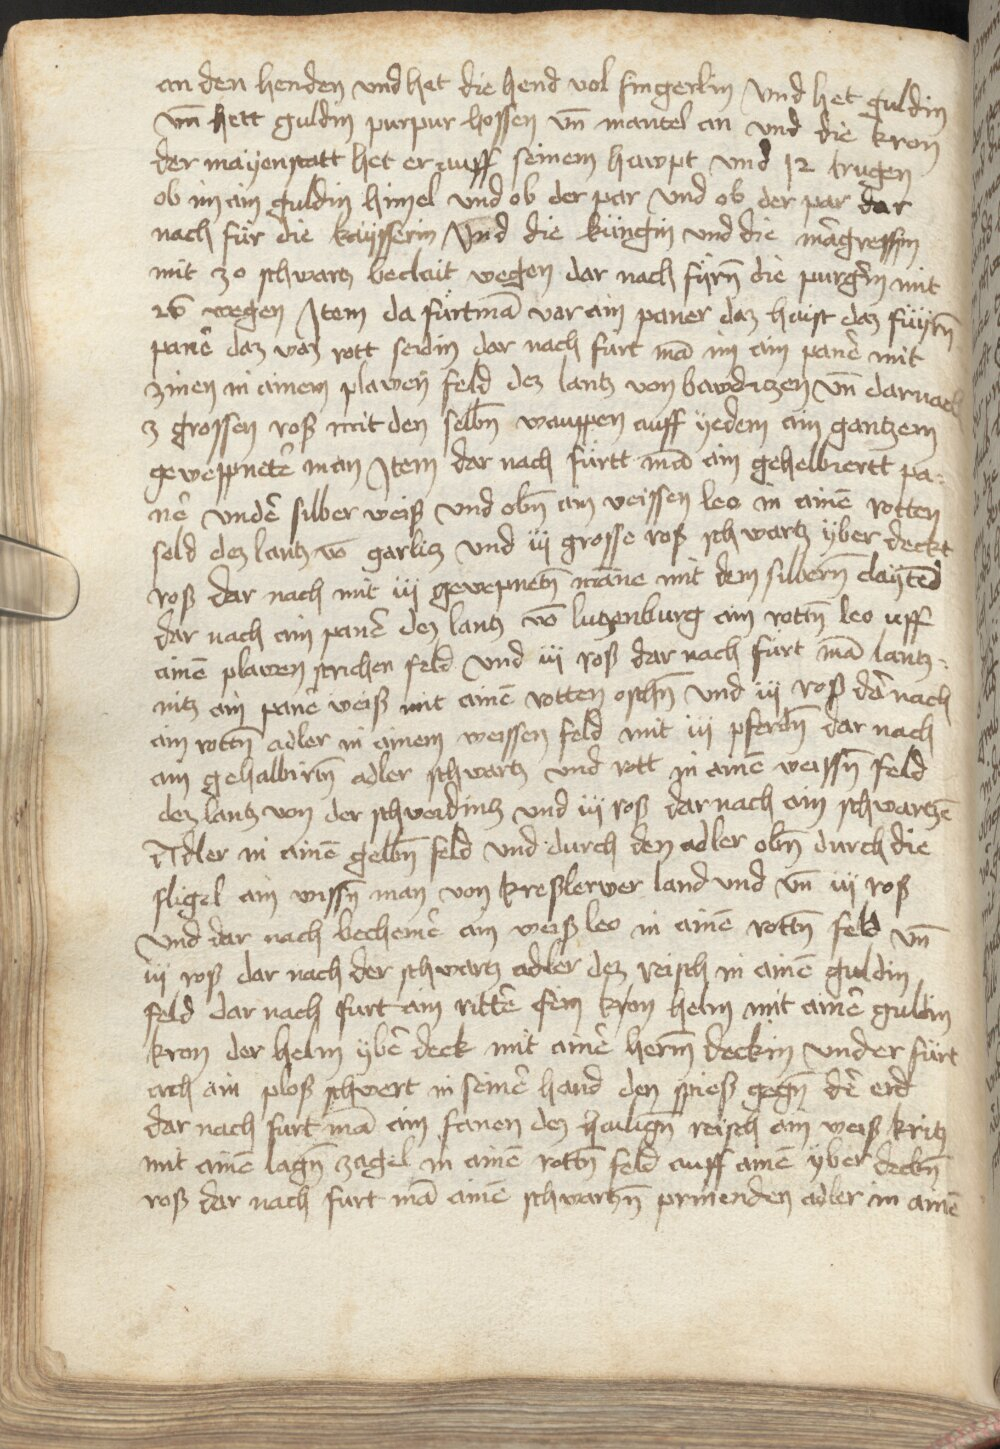 an den henden vnd het die hend vol fingerlin vnd het guldin
vn̄ hett guldin purpur hossen vn̄ mantel an vnd die kron
der mayenstatt het er auff seinem hawpt vnd 12 trugen
ob im ain guldin himel vnd ob der par vnd ob der par dar
nach für die kaÿsserin vnd die küngin vnd die margreffin
mit 30 schwartz beclait wegen dar nach fürn̄ die purgerin mit
26 wegen Item da fürt mā vor ain paner daz haist daz füyrn̄
panē daz waz rott seidin dar nach fürt mā im ain panē mit
zinen in ainem plawen feld dez lantz von bawdiczen vn̄ darnach
3 grossen roß mit den selbn̄ wauppen auff yedem ain gantzem
geweppnetē man Item dar nach fürtt mā ain gehelbiertt pa-
nē vndē silber weiß vnd obn̄ ain weissen leo in ainē rotten
feld dez lantz vō garlitz vnd iij grosse roß schwartz ÿber deckt
roß dar nach mit iij gewepnetn̄ mane mit dem silbern̄ claÿted
dar nach ain panē dez lantz vō lutzenburg ain rottn̄ leo uff
ainē plawen strichen feld vnd iij roß dar nach fürt mā lantz-
nitz ain panē weiß mit ainē rotten oschn̄ vnd iij roß dar nach
ain rottn̄ adler in ainem weissen feld mit iij pferdn̄ dar nach
ain gehalbirtn̄ adler schwartz vnd rott in ainē weissn̄ feld
dez lantz von der schweidintz vnd iij roß dar nach ain schwartzē
Adler in ainē gelbn̄ feld vnd durch den adler obn̄ durch die
fligel ain wissn̄ man von kreßlerwer land vnd vn̄ iij roß
vnd dar nach bechemē ain weiß leo in ainē rottn̄ feld vn̄
iij roß dar nach der schwartz adler dez reisch in ainē guldin
feld dar nach fürt ain rittē sein kron helm mit ainē guldin
kron der helm ÿbē deck mit ainē herm̄ deckin vnd er fürt
ach ain ploß schwert in seinē hand den spieß gegn̄ dē erd
dar nach fürt mā ain fanen dez hailign̄ reisch ain weiß kritz
mit ainē lagn̄ zagel in ainē rottn̄ feld auff ainē ÿber decktn̄
roß dar nach fürt mā ainē schwartzn̄ prinenden adler in ainē